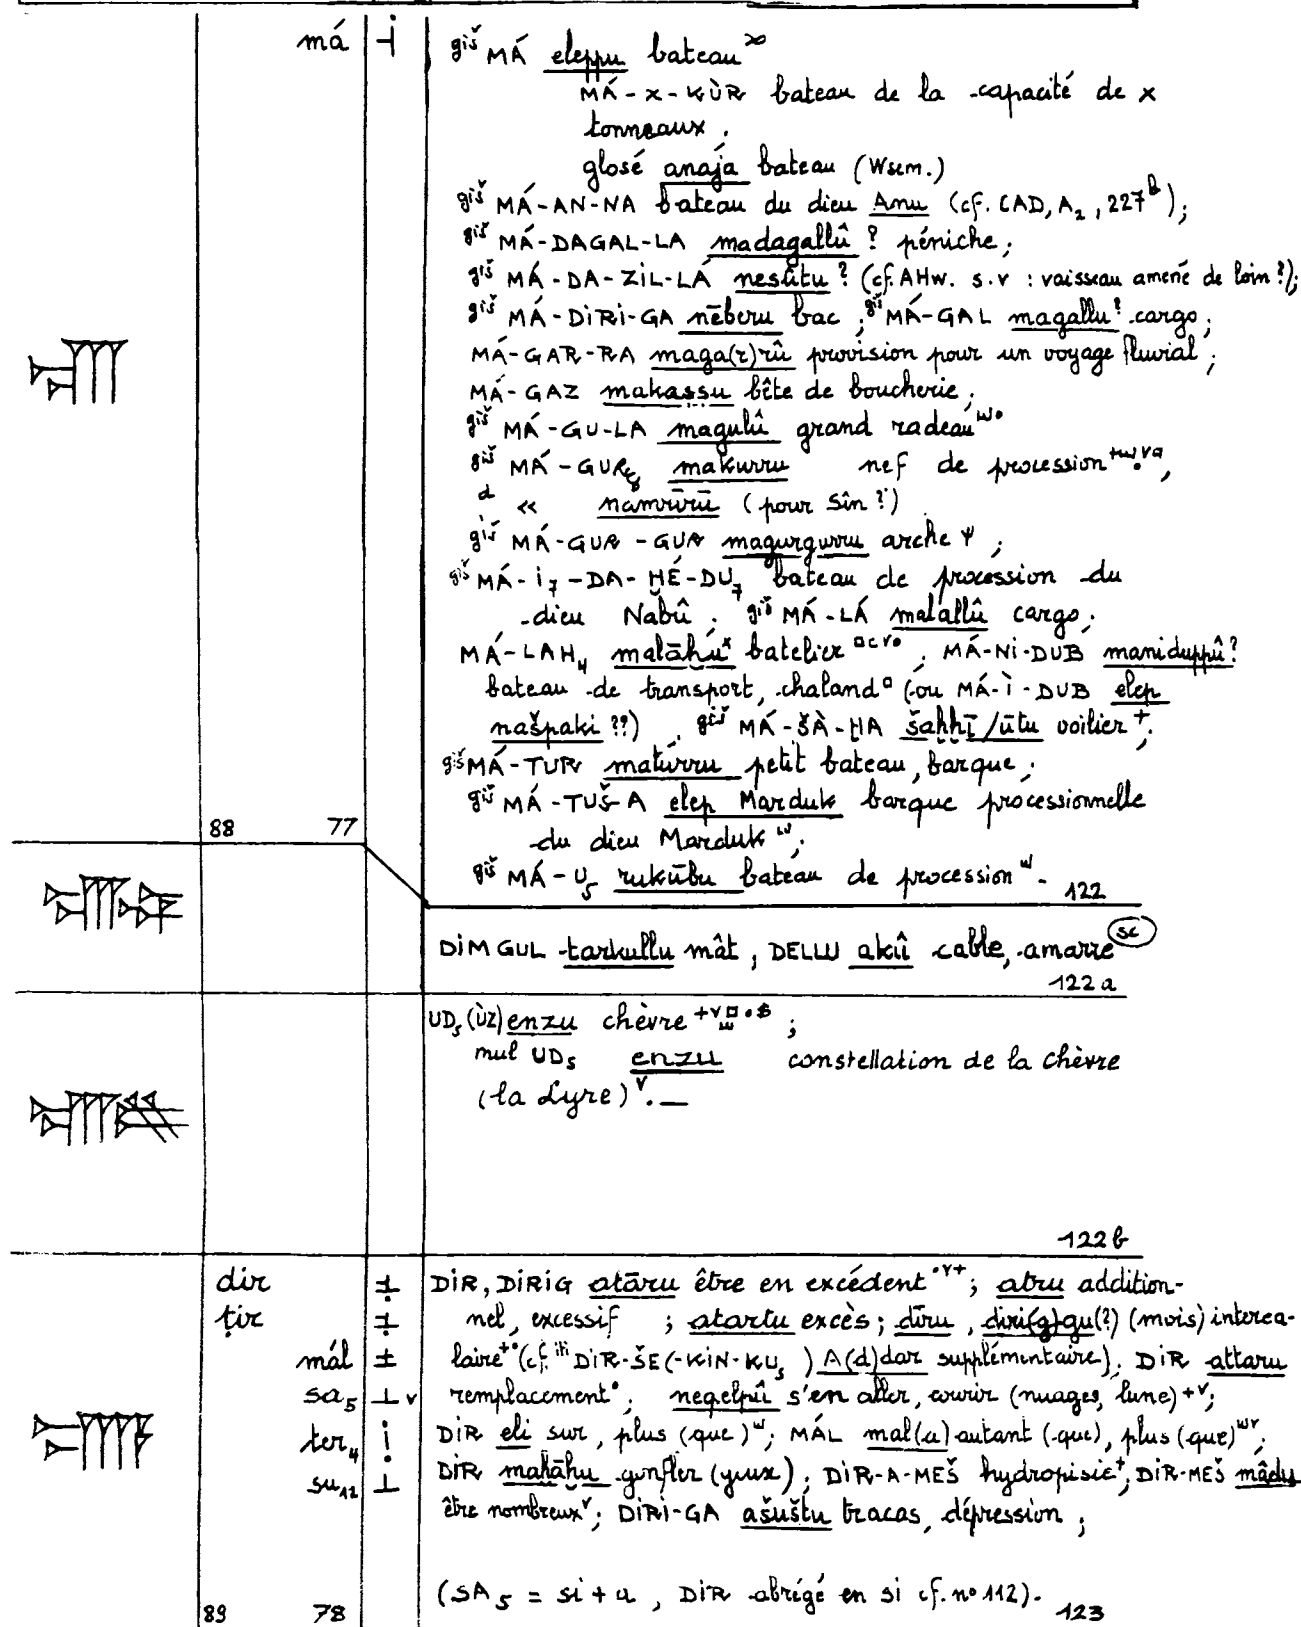 má ⊣ i
giš MÁ eleppu bateau
MÁ-x-KÙR bateau de la capacité de x
tonneaux.
glosé anaja bateau (Wsem.)
giš MÁ-AN-NA bateau du dieu Anu (cf. CAD, A₂, 227ᵇ);
giš MÁ-DAGAL-LA madagallû ? péniche;
giš MÁ-DA-ZIL-LÁ nesûtu ? (cf. AHw. s.v : vaisseau amené de loin ?);
giš MÁ-DIRI-GA nēberu bac ; giš MÁ-GAL magallu? cargo;
MÁ-GAR-RA maga(r)rû provision pour un voyage fluvial;
MÁ-GAZ makaṣṣu bête de boucherie;
giš MÁ-GU-LA magulû grand radeau
giš MÁ-GUR₈ makurru nef de procession,
d « namrūrū (pour Sîn ?)
giš MÁ-GUR-GUR magurgurru arche ;
giš MÁ-I₇-DA-ḪÉ-DU₇ bateau de procession du
dieu Nabû ; giš MÁ-LÁ malallû cargo;
MÁ-LAH₄ malāḫu batelier ; MÁ-NI-DUB maniduppû?
bateau de transport, chaland (ou MÁ-Ì-DUB elep
našpaki ??) giš MÁ-ŠÀ-ḪA šaḫḫī/ūtu voilier +;
giš MÁ-TUR maturru petit bateau, barque;
giš MÁ-TUŠ-A elep Marduk barque processionnelle
88 77 du dieu Marduk ;
giš MÁ-U₅ rukūbu bateau de procession 122
DIMGUL tarkullu mât, DELLU akû cable, amarre sc
122a
UD₅ (ÙZ) enzu chèvre ;
mul UD₅ enzu constellation de la chèvre
(la Lyre) v.
122b
dir DIR, DIRIG atāru être en excédent ; atru addition-
ṭir nel, excessif ; atartu excès ; dīru, diri(g)gu(?) (mois) interca-
mál ± laire (cf. iti DIR-ŠE(-KIN-KU₅) A(d)dar supplémentaire), DIR attaru
sa₅ ⊥ v remplacement ; neqelpû s'en aller, courir (nuages, lune) +v;
ter₄ DIR eli sur, plus (que) ; MÁL mal(a) autant (que), plus (que) ;
su₁₂ ⊥ DIR maḫāḫu gonfler (yeux) ; DIR-A-MEŠ hydropisie +, DIR-MEŠ mâdu
être nombreux v; DIRI-GA ašuštu tracas, dépression ;
(SA₅ = si + a, DIR abrégé en si cf. n° 112).
89 78 123